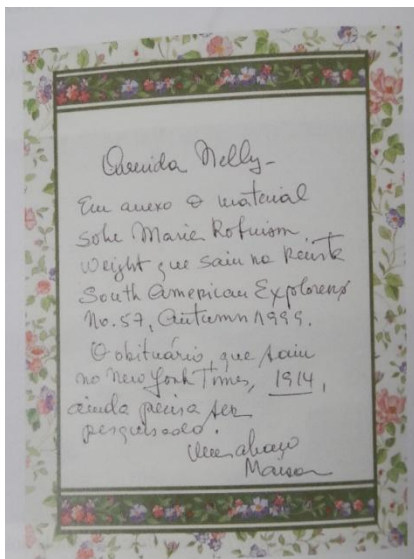 Querida Nelly -
Em anexo o material
sobre Marie Robinson
Wright que saiu na Revista
South American Explorers
No. 57, Autumn 1999.
O obituário, que saiu
no New York Times, 1914,
ainda precisa ser
pesquisado.
Um abraço